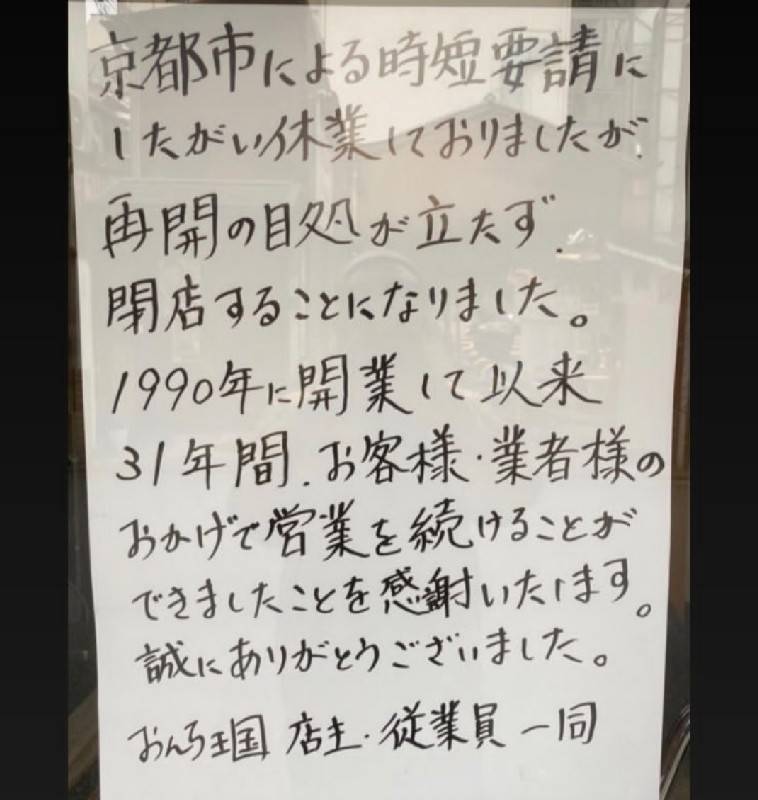 京都市による時短要請に
したがい休業しておりましたが、
再開の目処が立たず、
閉店することになりました。
1990年に開業して以来
31年間、お客様・業者様の
おかげで営業を続けることが
できましたことを感謝いたします。
誠にありがとうございました。
おんち王国 店主・従業員一同